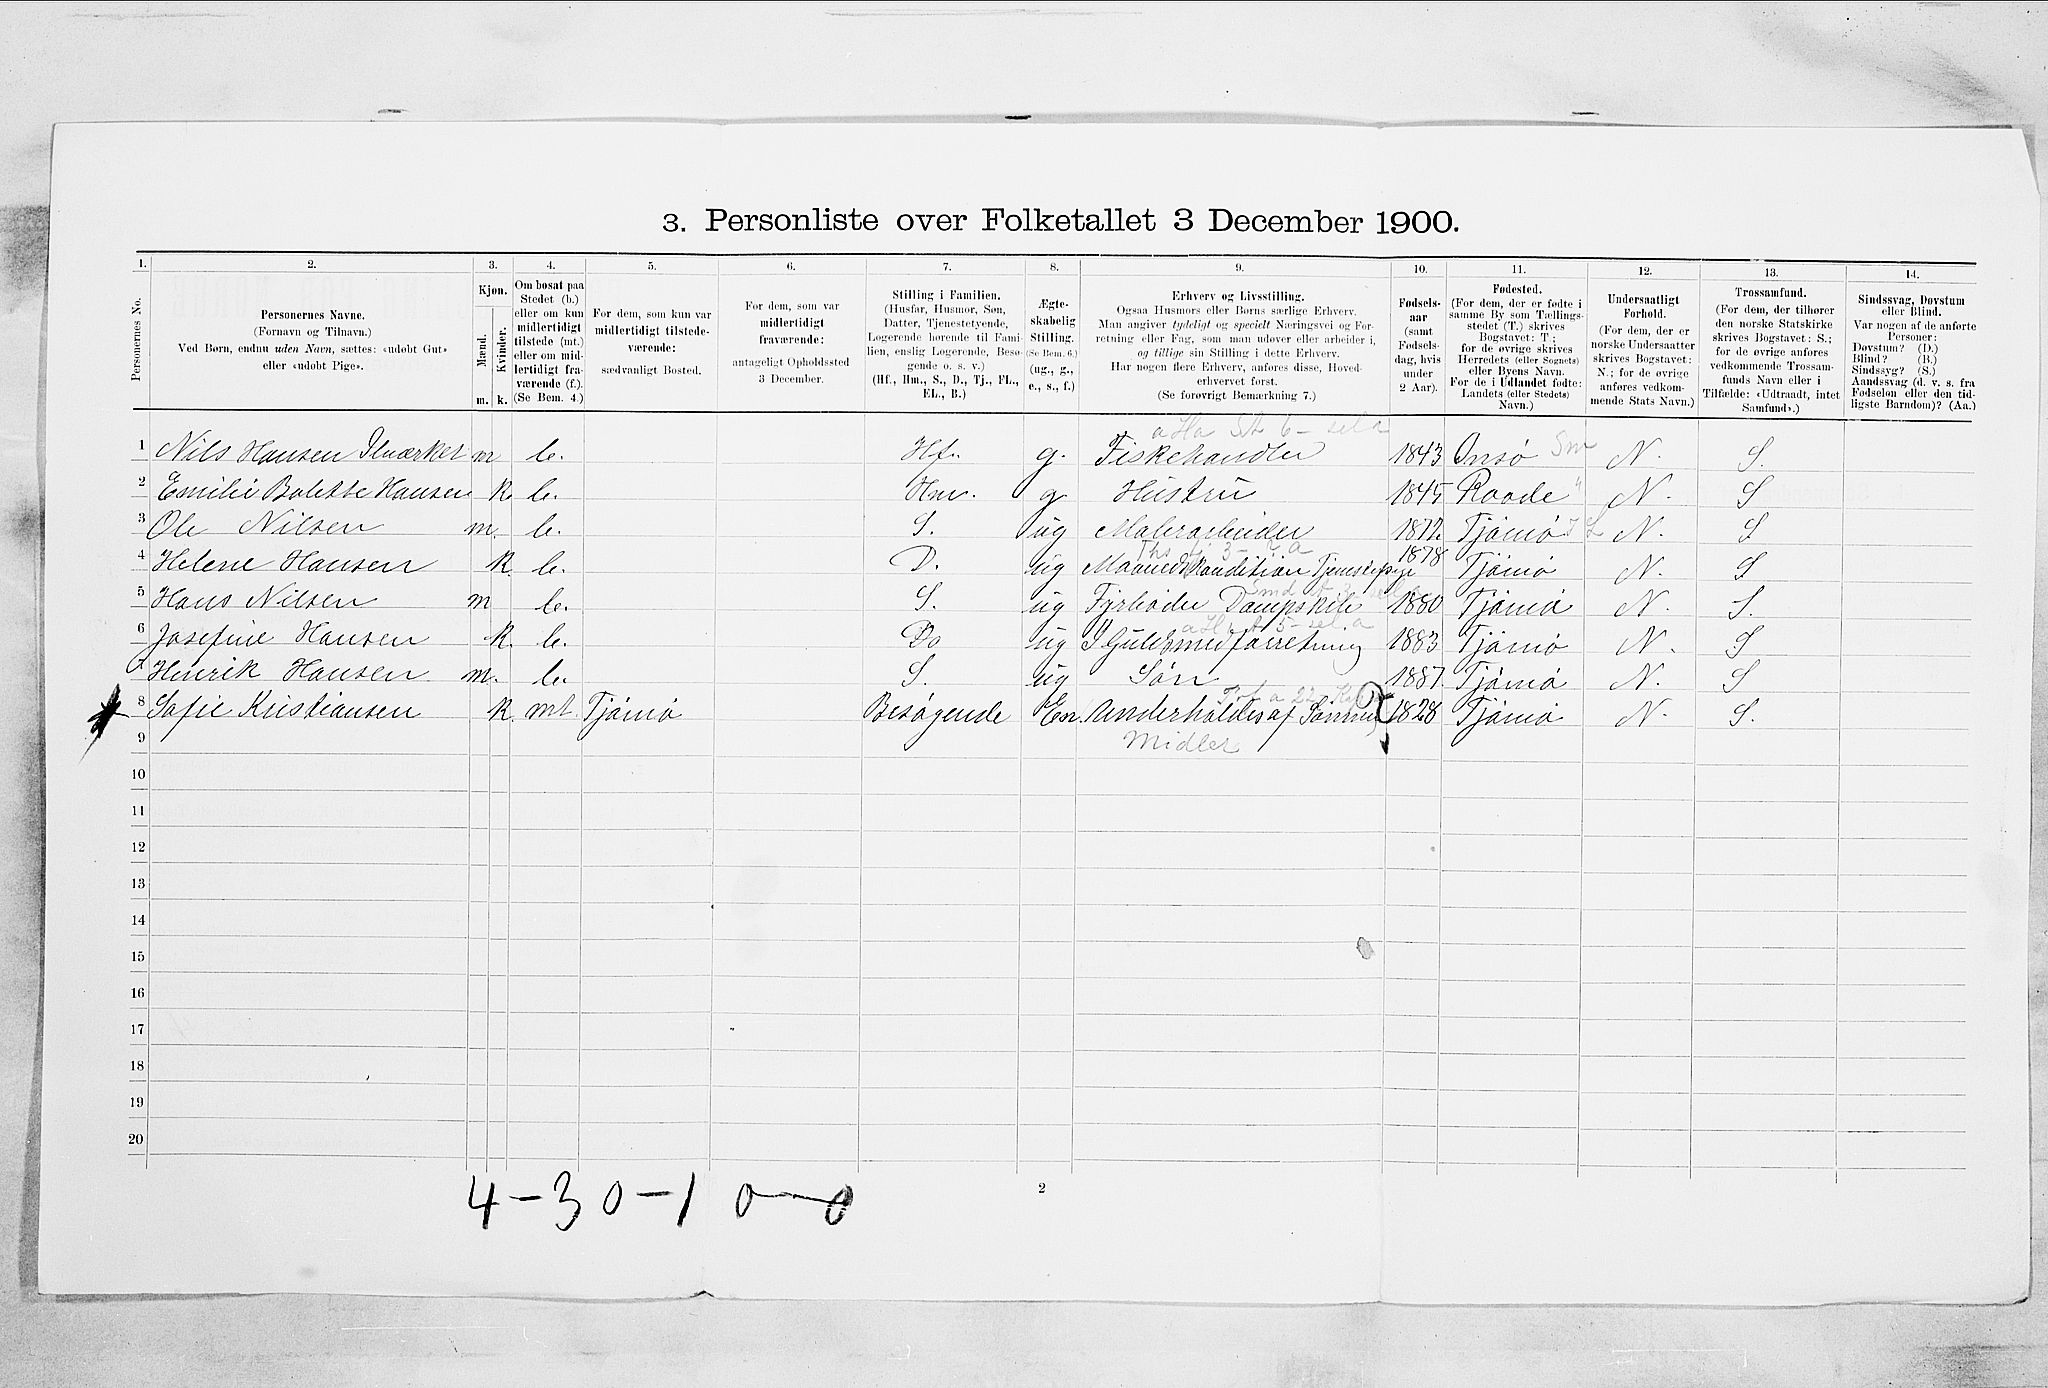 3. Personliste over Folketallet 3 December 1900.
1. 2. 3. 4. 5. 6. 7. 8. 9. 10. 11. 12. 13. 14.
Personernes No.
Personernes Navne.
(Fornavn og Tilnavn.)
Ved Børn, endnu uden Navn, sættes: «udøbt Gut»
eller «udøbt Pige».
Kjøn.
Mænd.
Kvinder.
m. k.
Om bosat paa
Stedet (b.)
eller om kun
midlertidigt
tilstede (mt.)
eller om mid-
lertidigt fra-
værende (f.).
(Se Bem. 4.)
For dem, som kun var
midlertidigt tilstede-
værende:
sædvanligt Bosted.
For dem, som var
midlertidigt
fraværende:
antageligt Opholdssted
3 December.
Stilling i Familien.
(Husfar, Husmor, Søn,
Datter, Tjenestetyende,
Logerende hørende til Fami-
lien, enslig Logerende, Besø-
gende o. s. v.)
(Hf., Hm., S., D., Tj., FL.,
EL., B.)
Ægte-
skabelig
Stilling.
(Se Bem. 6.)
(ug., g.,
e., s., f.)
Erhverv og Livsstilling.
Ogsaa Husmors eller Børns særlige Erhverv.
Man angiver tydeligt og specielt Næringsvei og For-
retning eller Fag, som man udøver eller arbeider i,
og tillige sin Stilling i dette Erhverv.
Har nogen flere Erhverv, anføres disse, Hoved-
erhvervet først.
(Se forøvrigt Bemærkning 7.)
Fødsels-
aar
(samt
Fødsels-
dag, hvis
under
2 Aar).
Fødested.
(For dem, der er fødte i
samme By som Tællings-
stedet (T.) skrives
Bogstavet: T;
for de øvrige skrives
Herredets (eller Sognets)
eller Byens Navn.
For de i Udlandet fødte:
Landets (eller Stedets)
Navn.)
Undersaatligt
Forhold.
(For dem, der er
norske Undersaatter
skrives Bogstavet:
N.; for de øvrige
anføres vedkom-
mende Stats Navn.)
Trossamfund.
(For dem, der tilhører
den norske Statskirke
skrives Bogstavet: S.;
for de øvrige anføres
vedkommende Trossam-
funds Navn eller i
Tilfælde: «Udtraadt, intet
Samfund».)
Sindssvag, Døvstum
eller Blind.
Var nogen af de anførte
Personer:
Døvstum? (D.)
Blind? (B.)
Sindssyg? (S.)
Aandssvag (d. v. s. fra
Fødselen eller den tid-
ligste Barndom)? (Aa.)
1 Nils Hansen m b. Hf. g. Fiskehandler 1843 Onsö N. S.
2 Emilie Bolette Hansen k b. Hm. g Hustru 1845 Raade N. S
3 Ole Nilsen m. b. S. ug Malerarbeider 1872 Tjömö N. S
4 Helene Hansen k. b. D. ug Maaneds Kondition Tjenestepige 1878 Tjömö N. S
5 Hans Nilsen m b. S. ug Fyrböder Dampskib 1880 Tjömö N. S.
6 Josefine Hansen k. b. Do ug I Guldsmedforretning 1883 Tjömö N. S
7 Henrik Hansen m. b. S. ug Sön 1887 Tjömö N. S
8 Sofie Kristiansen k. mt. Tjömö Besögende En. Underholdes af Sönnens 1828 Tjömö N. S.
9 Midler
10
11
12
13
14
15
16
17
18
19
20
4-3 0-1 0-0
2